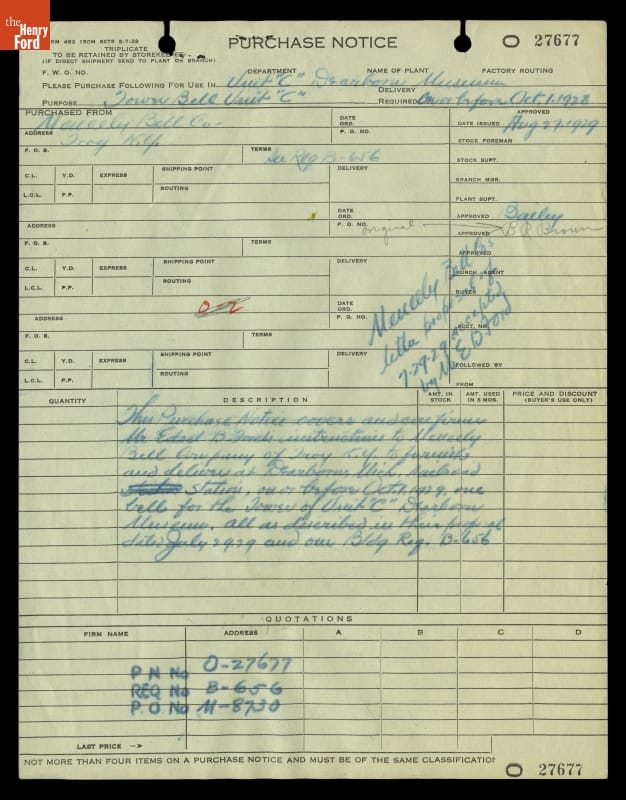 the
Henry
Ford
FORM 492 150M SETS 2-7-29
TRIPLICATE
TO BE RETAINED BY STOREKEEPER
(IF DIRECT SHIPMENT SEND TO PLANT OR BRANCH)
PURCHASE NOTICE
O 27677
F. W. O. NO.
DEPARTMENT
NAME OF PLANT
FACTORY ROUTING
PLEASE PURCHASE FOLLOWING FOR USE IN Unit "C" Dearborn Museum
PURPOSE Tower Bell Unit "C"
DELIVERY REQUIRED On or before Oct. 1. 1928
PURCHASED FROM
Meneely Bell Co.
DATE ORD.
APPROVED
DATE ISSUED Aug 27. 1929
ADDRESS Troy N.Y.
P. O. NO.
STOCK FOREMAN
F. O. B.
TERMS See Req B-656
STOCK SUPT.
C.L. Y.D. EXPRESS SHIPPING POINT DELIVERY
BRANCH MGR.
L.C.L. P.P. ROUTING
PLANT SUPT.
DATE ORD.
APPROVED Bailey
ADDRESS
P. O. NO. original
APPROVED B R Brown
F. O. B.
TERMS
APPROVED
C.L. Y.D. EXPRESS SHIPPING POINT DELIVERY
PURCH. AGENT
L.C.L. P.P. ROUTING
BUYER
Meneely Bell Co's
letter proposal of
7-29-29 accepted
by Mr E B Ford
DATE ORD.
ADDRESS
P. O. NO.
ACCT. NO.
F. O. B.
TERMS
C.L. Y.D. EXPRESS SHIPPING POINT DELIVERY
FOLLOWED BY
L.C.L. P.P. ROUTING
FROM
QUANTITY
DESCRIPTION
AMT. IN STOCK
AMT. USED IN 3 MOS.
PRICE AND DISCOUNT
(BUYER'S USE ONLY)
This Purchase Notice covers and confirms
Mr. Edsel B Fords instructions to Meneely
Bell Company of Troy N.Y. to furnish
and deliver at Dearborn, Mich. Railroad
Station, on or before Oct. 1. 1929, one
bell for the Tower of Unit "C" Dearborn
Museum. all as described in their proposal
dated July 29.29 and our Bldg Req. B-656
QUOTATIONS
FIRM NAME ADDRESS A B C D
P N No O-27677
REQ No B-656
P. O No M-8730
LAST PRICE -->
NOT MORE THAN FOUR ITEMS ON A PURCHASE NOTICE AND MUST BE OF THE SAME CLASSIFICATION
O 27677